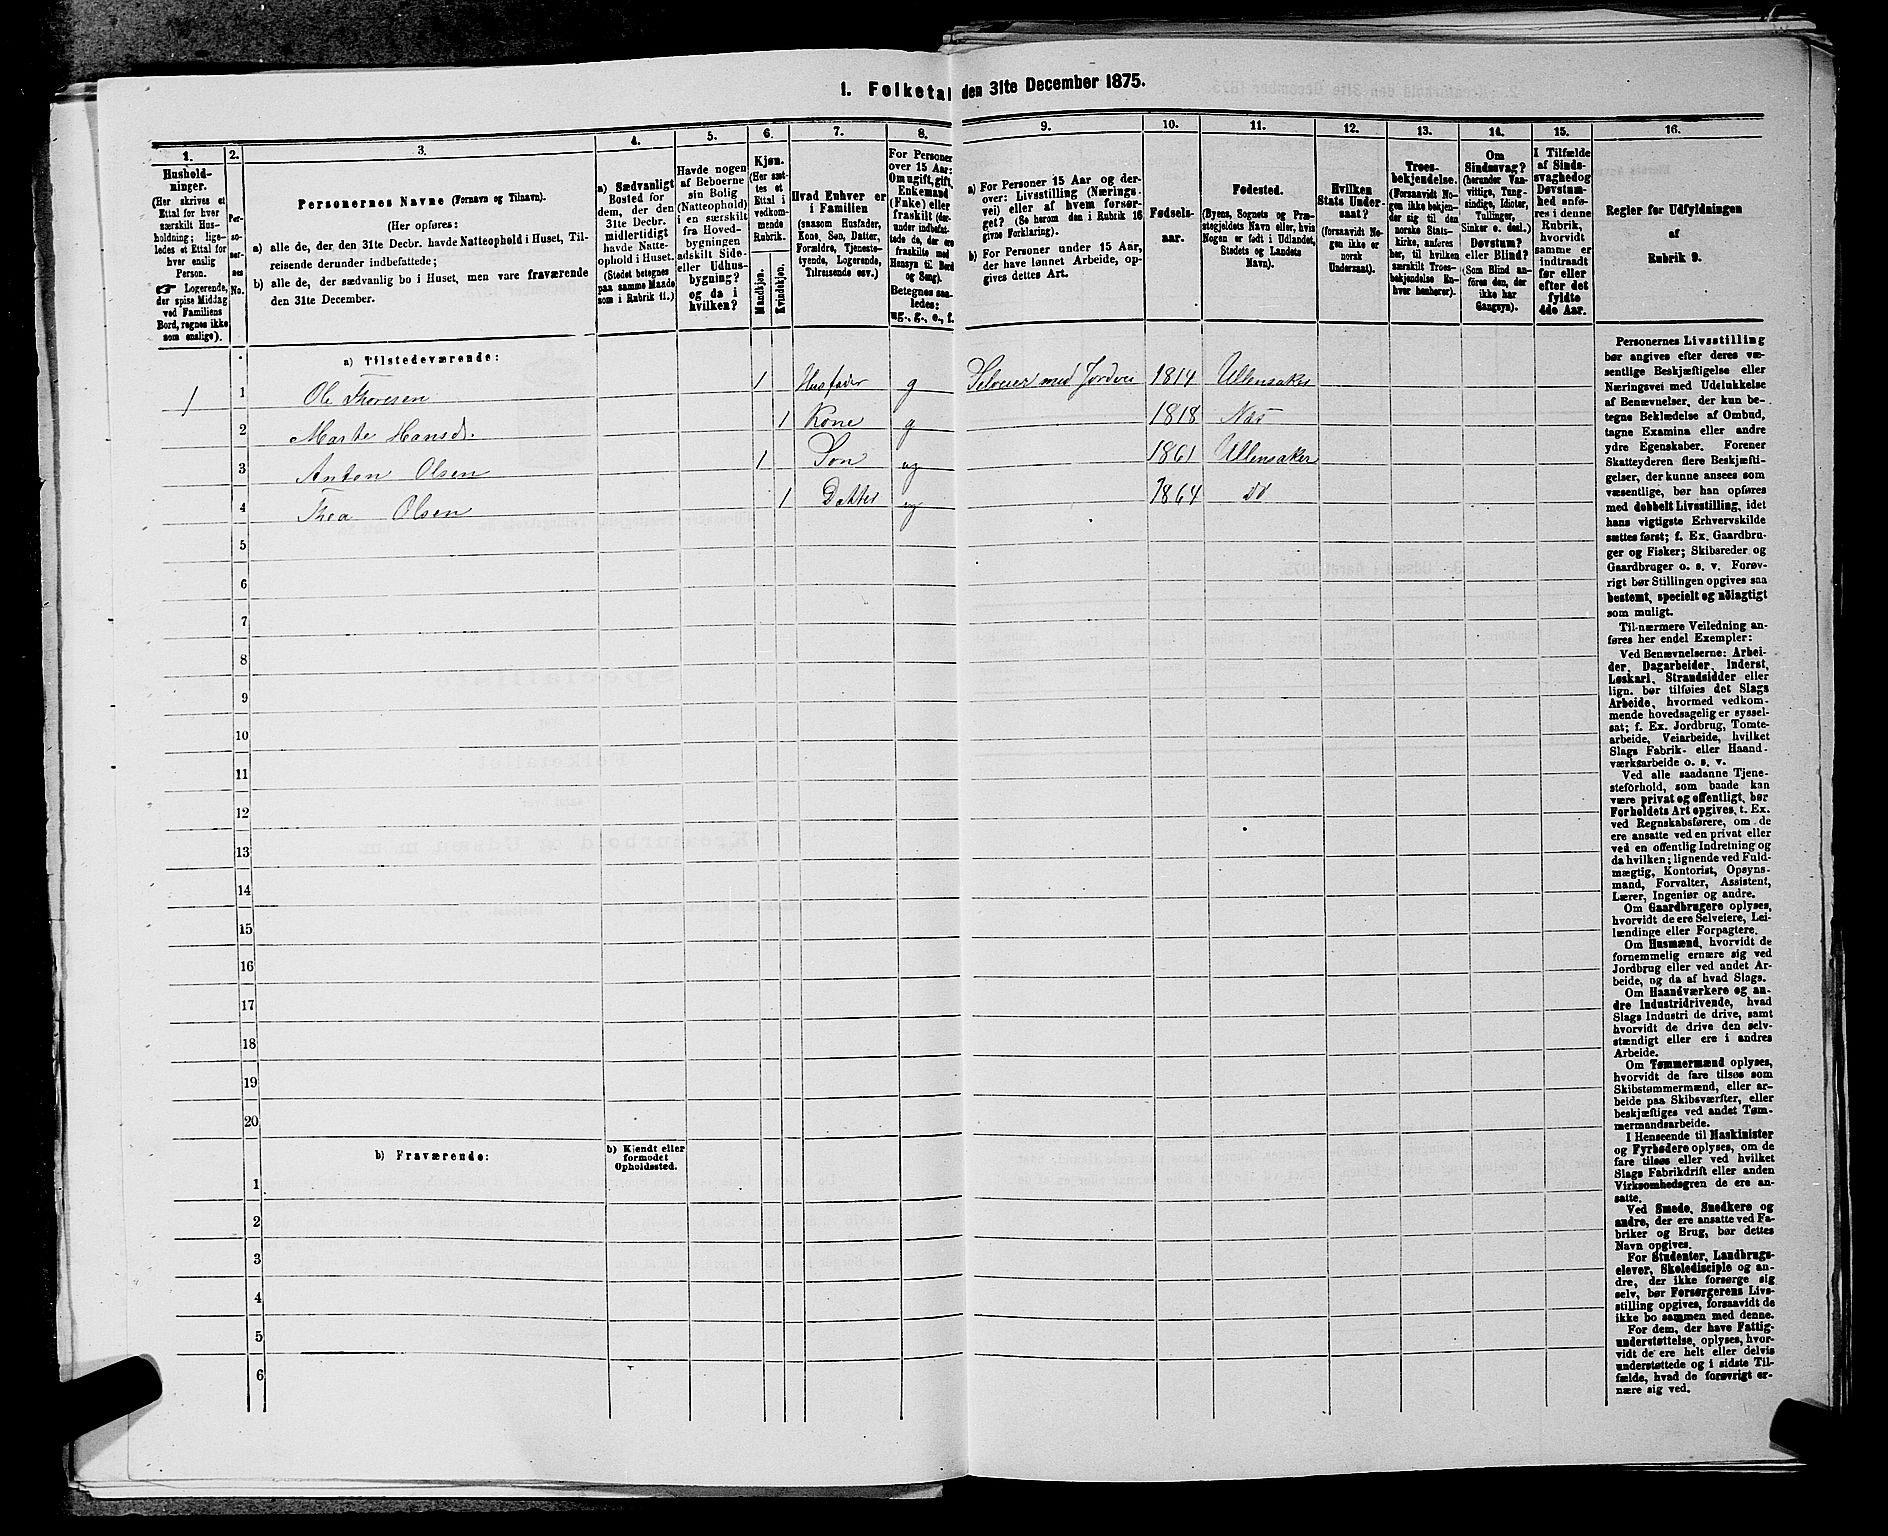 1. Folketal den 31te December 1875.
1.
Hushold-
ninger.
(Her skrives et
Ettal for hver
særskilt Hus-
holdning; lige-
ledes et Ettal for
hver enslig
Person.
☛ Logerende,
der spise Middag
ved Familiens
Bord, regnes ikke
som enslige).
2.
Per-
so-
ner-
nes
No.
3.
Personernes Navne (Fornavn og Tilnavn).
(Her opføres:
a) alle de, der den 31te Decbr. havde Natteophold i Huset, Til-
reisende derunder indbefattede;
b) alle de, der sædvanlig bo i Huset, men vare fraværende
den 31te December.
4.
a) Sædvanligt
Bosted for
dem, der den
31te Decbr.
midlertidigt
havde Natte-
ophold i Huset.
(Stedet betegnes
paa samme Maade
som i Rubrik 11.)
5.
Havde nogen
af Beboerne
sin Bolig
(Natteophold)
i en særskilt
fra Hoved-
bygningen
adskilt Side-
eller Udhus-
bygning?
og da i
hvilken?
6.
Kjøn.
(Her sæt-
tes et
Ettal i
vedkom-
mende
Rubrik.
Mandkjøn.
Kvindekjøn.
7.
Hvad Enhver er
i Familien
(saasom Husfader,
Kone, Søn, Datter,
Forældre, Tjeneste-
tyende, Logerende,
Tilreisende osv.)
8.
For Personer
over 15 Aar:
Om ugift, gift,
Enkemand
(Enke) eller
fraskilt (der-
under indbefat-
tede de, der ere
fraskilte med
Hensyn til Bord
og Seng).
Betegnes saa-
ledes:
ug., g., e., f.
9.
a) For Personer 15 Aar og der-
over: Livsstilling (Nærings-
vei) eller af hvem forsør-
get? (Se herom den i Rubrik 16
givne Forklaring).
b) For Personer under 15 Aar,
der have lønnet Arbeide, op-
gives dettes Art.
10.
Fødsels-
aar.
11.
Fødested.
(Byens, Sognets og Præ-
stegjeldets Navn eller, hvis
Nogen er født i Udlandet,
Stedets og Landets
Navn).
12.
Hvilken
Stats Under-
saat?
(forsaavidt No-
gen ikke er
norsk
Undersaat).
13.
Troes-
bekjendelse.
(Forsaavidt Nogen
ikke bekjen-
der sig til den
norske Stats-
kirke, anføres
her, til hvilken
særskilt Troes-
bekjendelse En-
hver henhører).
14.
Om
Sindssvag?
(herunder Van-
vittige, Tung-
sindige, Idioter,
Tullinger,
Sinker o. desl.)
Døvstum?
eller Blind?
(Som Blind an-
føres den, der
ikke har
Gangsyn).
15.
I Tilfælde
af Sinds-
svaghed og
Døvstum-
hed anfø-
res i denne
Rubrik,
hvorvidt
samme er
indtraadt
før eller
efter det
fyldte
4de Aar.
16.
Regler for Udfyldningen
af
Rubrik 9.
a) Tilstedeværende:
1 1 Ole Thoresen 1 Husfader g Selveier med Jordvei 1814 Ullensaker
2 Marte Hansd. 1 Kone g 1818 Næs
3 Anton Olsen 1 Søn ug 1861 Ullensaker
4 Thea Olsen 1 Datter ug 1864 do
5
6
7
8
9
10
11
12
13
14
15
16
17
18
19
20
b) Fraværende:
b) Kjendt eller
formodet
Opholdssted.
1
2
3
4
5
6
Personernes Livsstilling
bør angives efter deres væ-
sentlige Beskjæftigelse eller
Næringsvei med Udelukkelse
af Benævnelser, der kun be-
tegne Beklædelse af Ombud,
tagne Examina eller andre
ydre Egenskaber. Forener
Skatteyderen flere Beskjæfti-
gelser, der kunne ansees som
væsentlige, bør han opføres
med dobbelt Livsstilling, idet
hans vigtigste Erhvervskilde
sættes først; f. Ex. Gaardbru-
ger og Fisker; Skibsreder og
Gaardbruger o. s. v. Forøv-
rigt bør Stillingen opgives saa
bestemt, specielt og nøiagtigt
som muligt.
Til nærmere Veiledning an-
føres her endel Exempler:
Ved Benævnelserne: Arbei-
der, Dagarbeider, Inderst,
Løskarl, Strandsidder eller
lign. bør tilføies det Slags
Arbeide, hvormed vedkom-
mende hovedsagelig er syssel-
sat; f. Ex. Jordbrug, Tomte-
arbeide, Veiarbeide, hvilket
Slags Fabrik- eller Haand-
værksarbeide o. s. v.
Ved alle saadanne Tjene-
steforhold, som baade kan
være privat og offentligt, bør
Forholdets Art opgives, t. Ex.
ved Regnskabsførere, om de
ere ansatte ved en privat eller
ved en offentlig Indretning og
da hvilken; lignende ved Fuld-
mægtig, Kontorist, Opsyns-
mand, Forvalter, Assistent,
Lærer, Ingeniør og andre.
Om Gaardbrugere oplyses,
hvorvidt de ere Selveiere, Lei-
lændinge eller Forpagtere.
Om Husmænd, hvorvidt de
fornemmelig ernære sig ved
Jordbrug eller ved andet Ar-
beide, og da af hvad Slags.
Om Haandværkere og an-
dre Industridrivende, hvad
Slags Industri de drive, samt
hvorvidt de drive den selv-
stændigt eller ere i andres
Arbeide.
Om Tømmermænd oplyses,
hvorvidt de fare tilsøs som
Skibstømmermænd, eller ar-
beide paa Skibsværfter, eller
beskjæftiges ved andet Tøm-
mermandsarbeide.
I Henseende til Maskinister
og Fyrbødere oplyses, om de
fare tilsøs eller ved hvilket
Slags Fabrikdrift eller anden
Virksomhedsgren de ere an-
satte.
Ved Smede, Snedkere og
andre, der ere ansatte ved Fa-
briker og Brug, bør dettes
Navn opgives.
For Studenter, Landbrugs-
elever, Skoledisciple og an-
dre, der ikke forsørge sig
selv, bør Forsørgerens Livs-
stilling opgives, forsaavidt de
ikke bo sammen med denne.
For dem, der have Fattig-
understøttelse, oplyses, hvor-
vidt de ere helt eller delvis
understøttede og i sidste Til-
fælde, hvad de forøvrigt er-
nære sig ved.